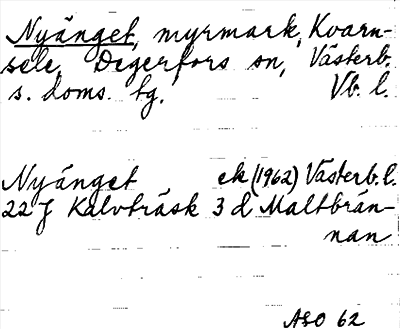 Nyänget, myrmark, Kvarn-
sele, Degerfors sn, Västerb.
s. doms. tg. Vb. l.
Nyänget ek (1962) Västerb. l.
22 J Kalvträsk 3 d Maltbrän-
nan
ASO 62